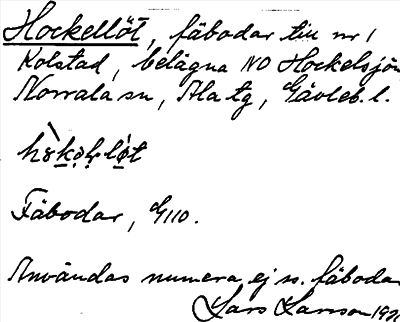 Hockellöt, fäbodar till nr 1
Kolstad, belägna NO Hockelsjön
Norrala sn, Ala tg, Gävleb. l.
Fäbodar, G110.
Användas numera ej ss. fäbodar
Lars Larsson 19